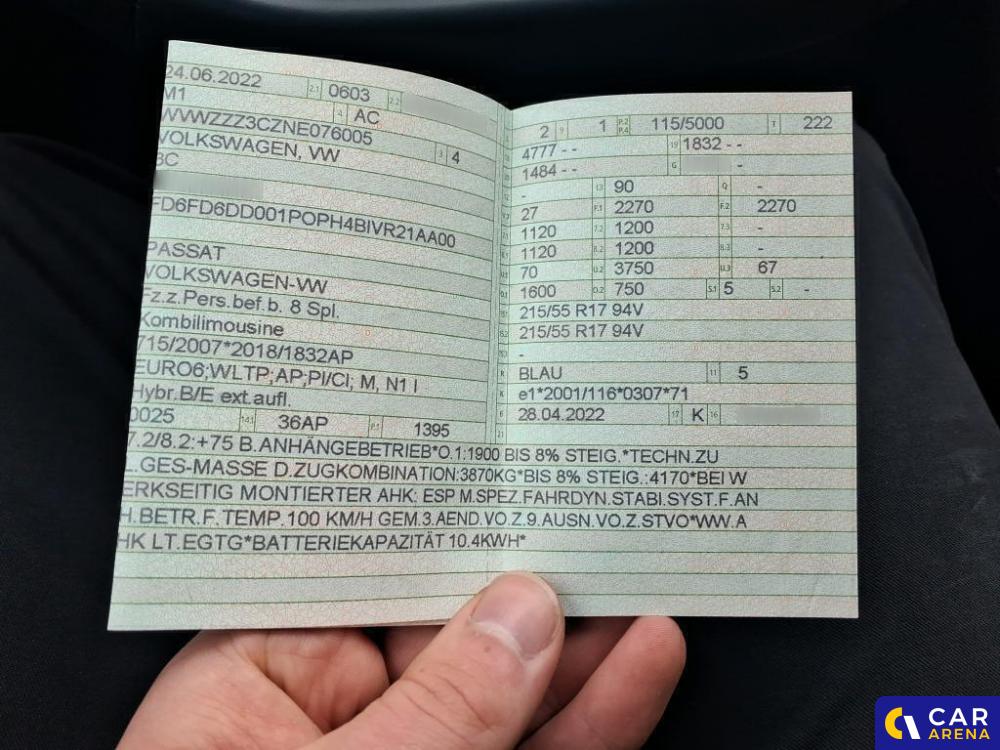 24.06.2022 2.1 0603 2.2
M1 4 AC
WVWZZZ3CZNE076005
VOLKSWAGEN, VW 3 4
3C
FD6FD6DD001POPH4BIVR21AA00
PASSAT
VOLKSWAGEN-VW
Fz.z.Pers.bef.b. 8 Spl.
Kombilimousine
715/2007*2018/1832AP
EURO6;WLTP;AP;PI/CI; M, N1 I
Hybr.B/E ext.aufl.
0025 14.1 36AP P.1 1395
2 9 1 P.2 P.4 115/5000 T 222
4777 - - 19 1832 - -
1484 - - G -
- 13 90 Q -
27 F.1 2270 F.2 2270
1120 7.2 1200 7.3 -
1120 8.2 1200 8.3 -
70 U.2 3750 U.3 67
1600 O.2 750 S.1 5 S.2 -
215/55 R17 94V
215/55 R17 94V
-
R BLAU 11 5
K e1*2001/116*0307*71
6 28.04.2022 17 K 16
21
7.2/8.2:+75 B.ANHÄNGEBETRIEB*O.1:1900 BIS 8% STEIG.*TECHN.ZU
L.GES-MASSE D.ZUGKOMBINATION:3870KG*BIS 8% STEIG.:4170*BEI W
ERKSEITIG MONTIERTER AHK: ESP M.SPEZ.FAHRDYN.STABI.SYST.F.AN
H.BETR.F.TEMP.100 KM/H GEM.3.AEND.VO.Z.9.AUSN.VO.Z.STVO*WW.A
HK LT.EGTG*BATTERIEKAPAZITÄT 10.4KWH*
CAR
ARENA